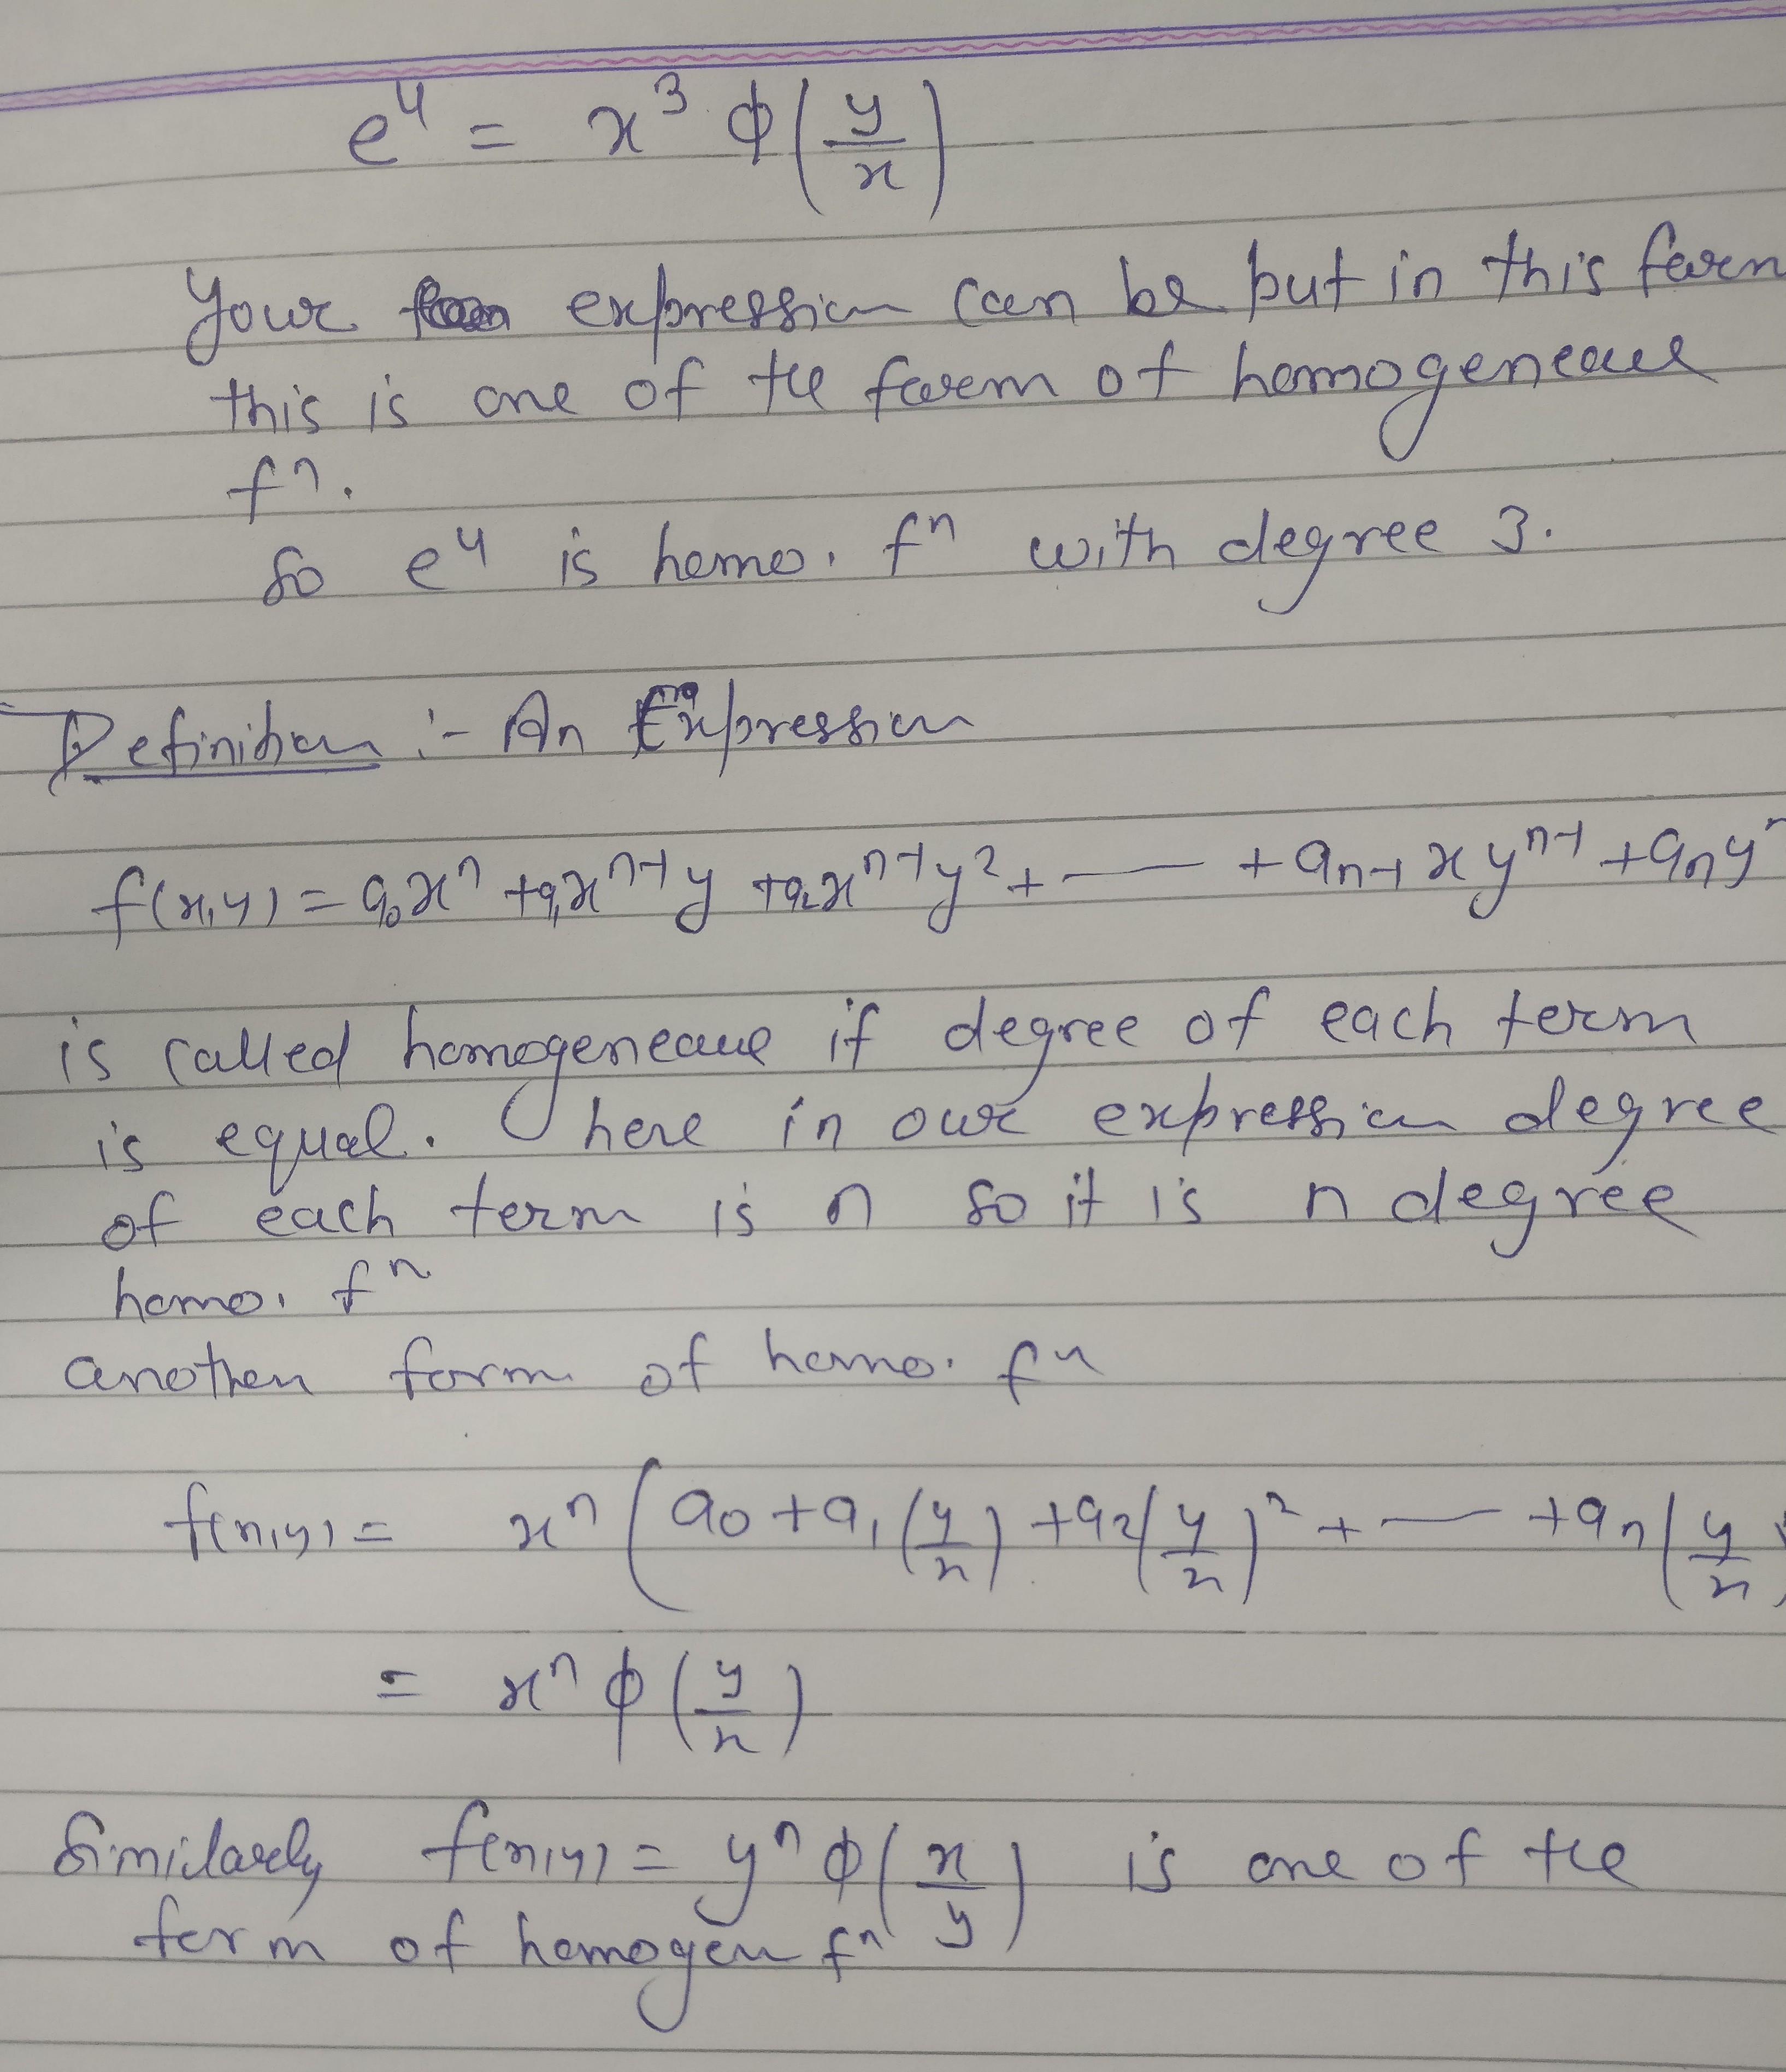 e^u = x³ φ(y/x)
Your expression can be put in this form
this is one of the form of homogeneous
fⁿ.
So e^u is homo. fⁿ with degree 3.
Definition :- An Expression
f(x,y) = a₀xⁿ + a₁xⁿ⁻¹y + a₂xⁿ⁻¹y² + —— + aₙ₋₁xyⁿ⁻¹ + aₙyⁿ
is called homogeneous if degree of each term
is equal. here in our expression degree
of each term is n so it is n degree
homo. fⁿ
another form of homo. fⁿ
f(x,y) = xⁿ (a₀ + a₁(y/x) + a₂(y/x)² + —— + aₙ(y/x)
= xⁿ φ(y/x)
Similarly f(x,y) = yⁿ φ(x/y) is one of the
form of homogen fⁿ